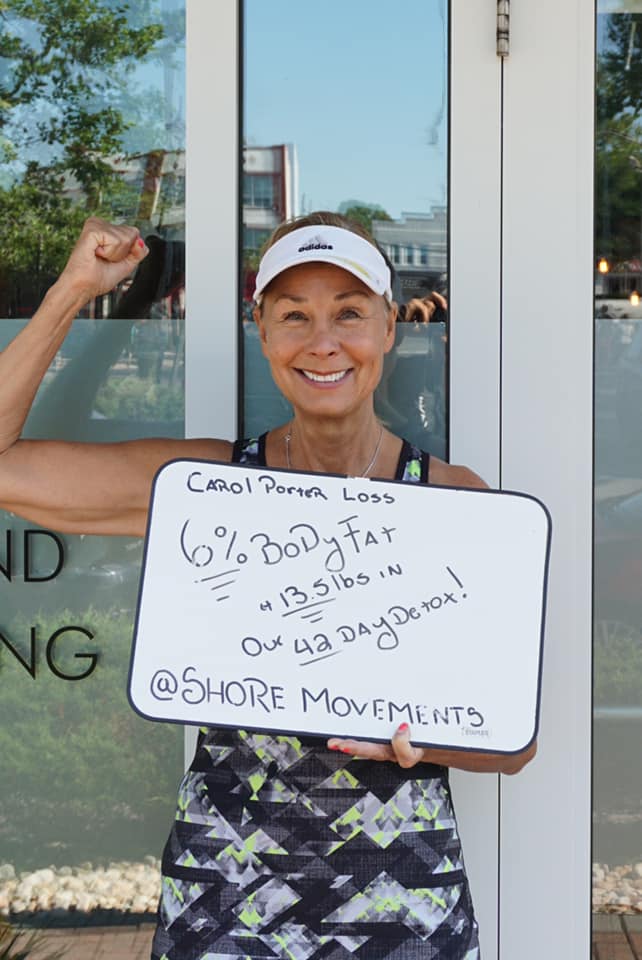 adidas
ND
NG
Carol Porter Loss
6% Body Fat
+ 13.5 lbs in
Our 42 Day Detox!
@Shore Movements